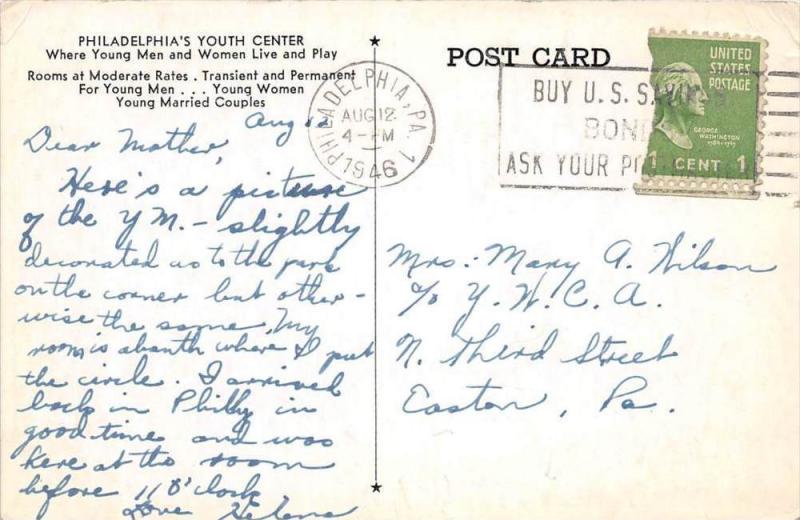 PHILADELPHIA'S YOUTH CENTER
Where Young Men and Women Live and Play
Rooms at Moderate Rates . Transient and Permanent
For Young Men . . . Young Women
Young Married Couples
Aug 12
Dear Mother,
Here's a picture
of the YM. - slightly
decorated as to the park
on the corner but other-
wise the same. My
room is abauth where I put
the circle. I arrived
back in Philly in
good time and was
here at the room
before 11 o'clock
Love Helene
POST CARD
PHILADELPHIA, PA. 1
AUG 12
4-PM
1946
BUY U.S. SAVINGS
BONDS
ASK YOUR PO
UNITED
STATES
POSTAGE
GEORGE
WASHINGTON
1789-1797
1 CENT 1
Mrs. Mary A. Wilson
c/o Y.W.C.A.
N. Third Street
Easton, Pa.